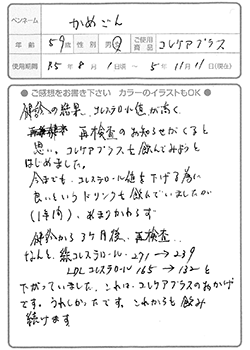 ペンネーム かめごん
年齢 59才 性別 男・女 ご使用商品 コレケアプラス
使用期間 R5年8月1日頃 ~ 5年11月11日(現在)
● ご感想をお書き下さい カラーのイラストもOK ●
健診の結果、コレステロール値が高く、
再検査のお知らせがくると
思い、コレケアプラスを飲んでみようと
はじめました。
今までも、コレステロール値を下げる為に
良いというドリンクも飲んでいましたが
(1年間)、あまりかわらず
健診から3ヶ月後、再検査
なんと、総コレステロール 271 → 239
LDLコレステロール 165 → 132と
下がっていました。これは、コレケアプラスのおかげ
です。うれしかったです。これからも飲み
続けます